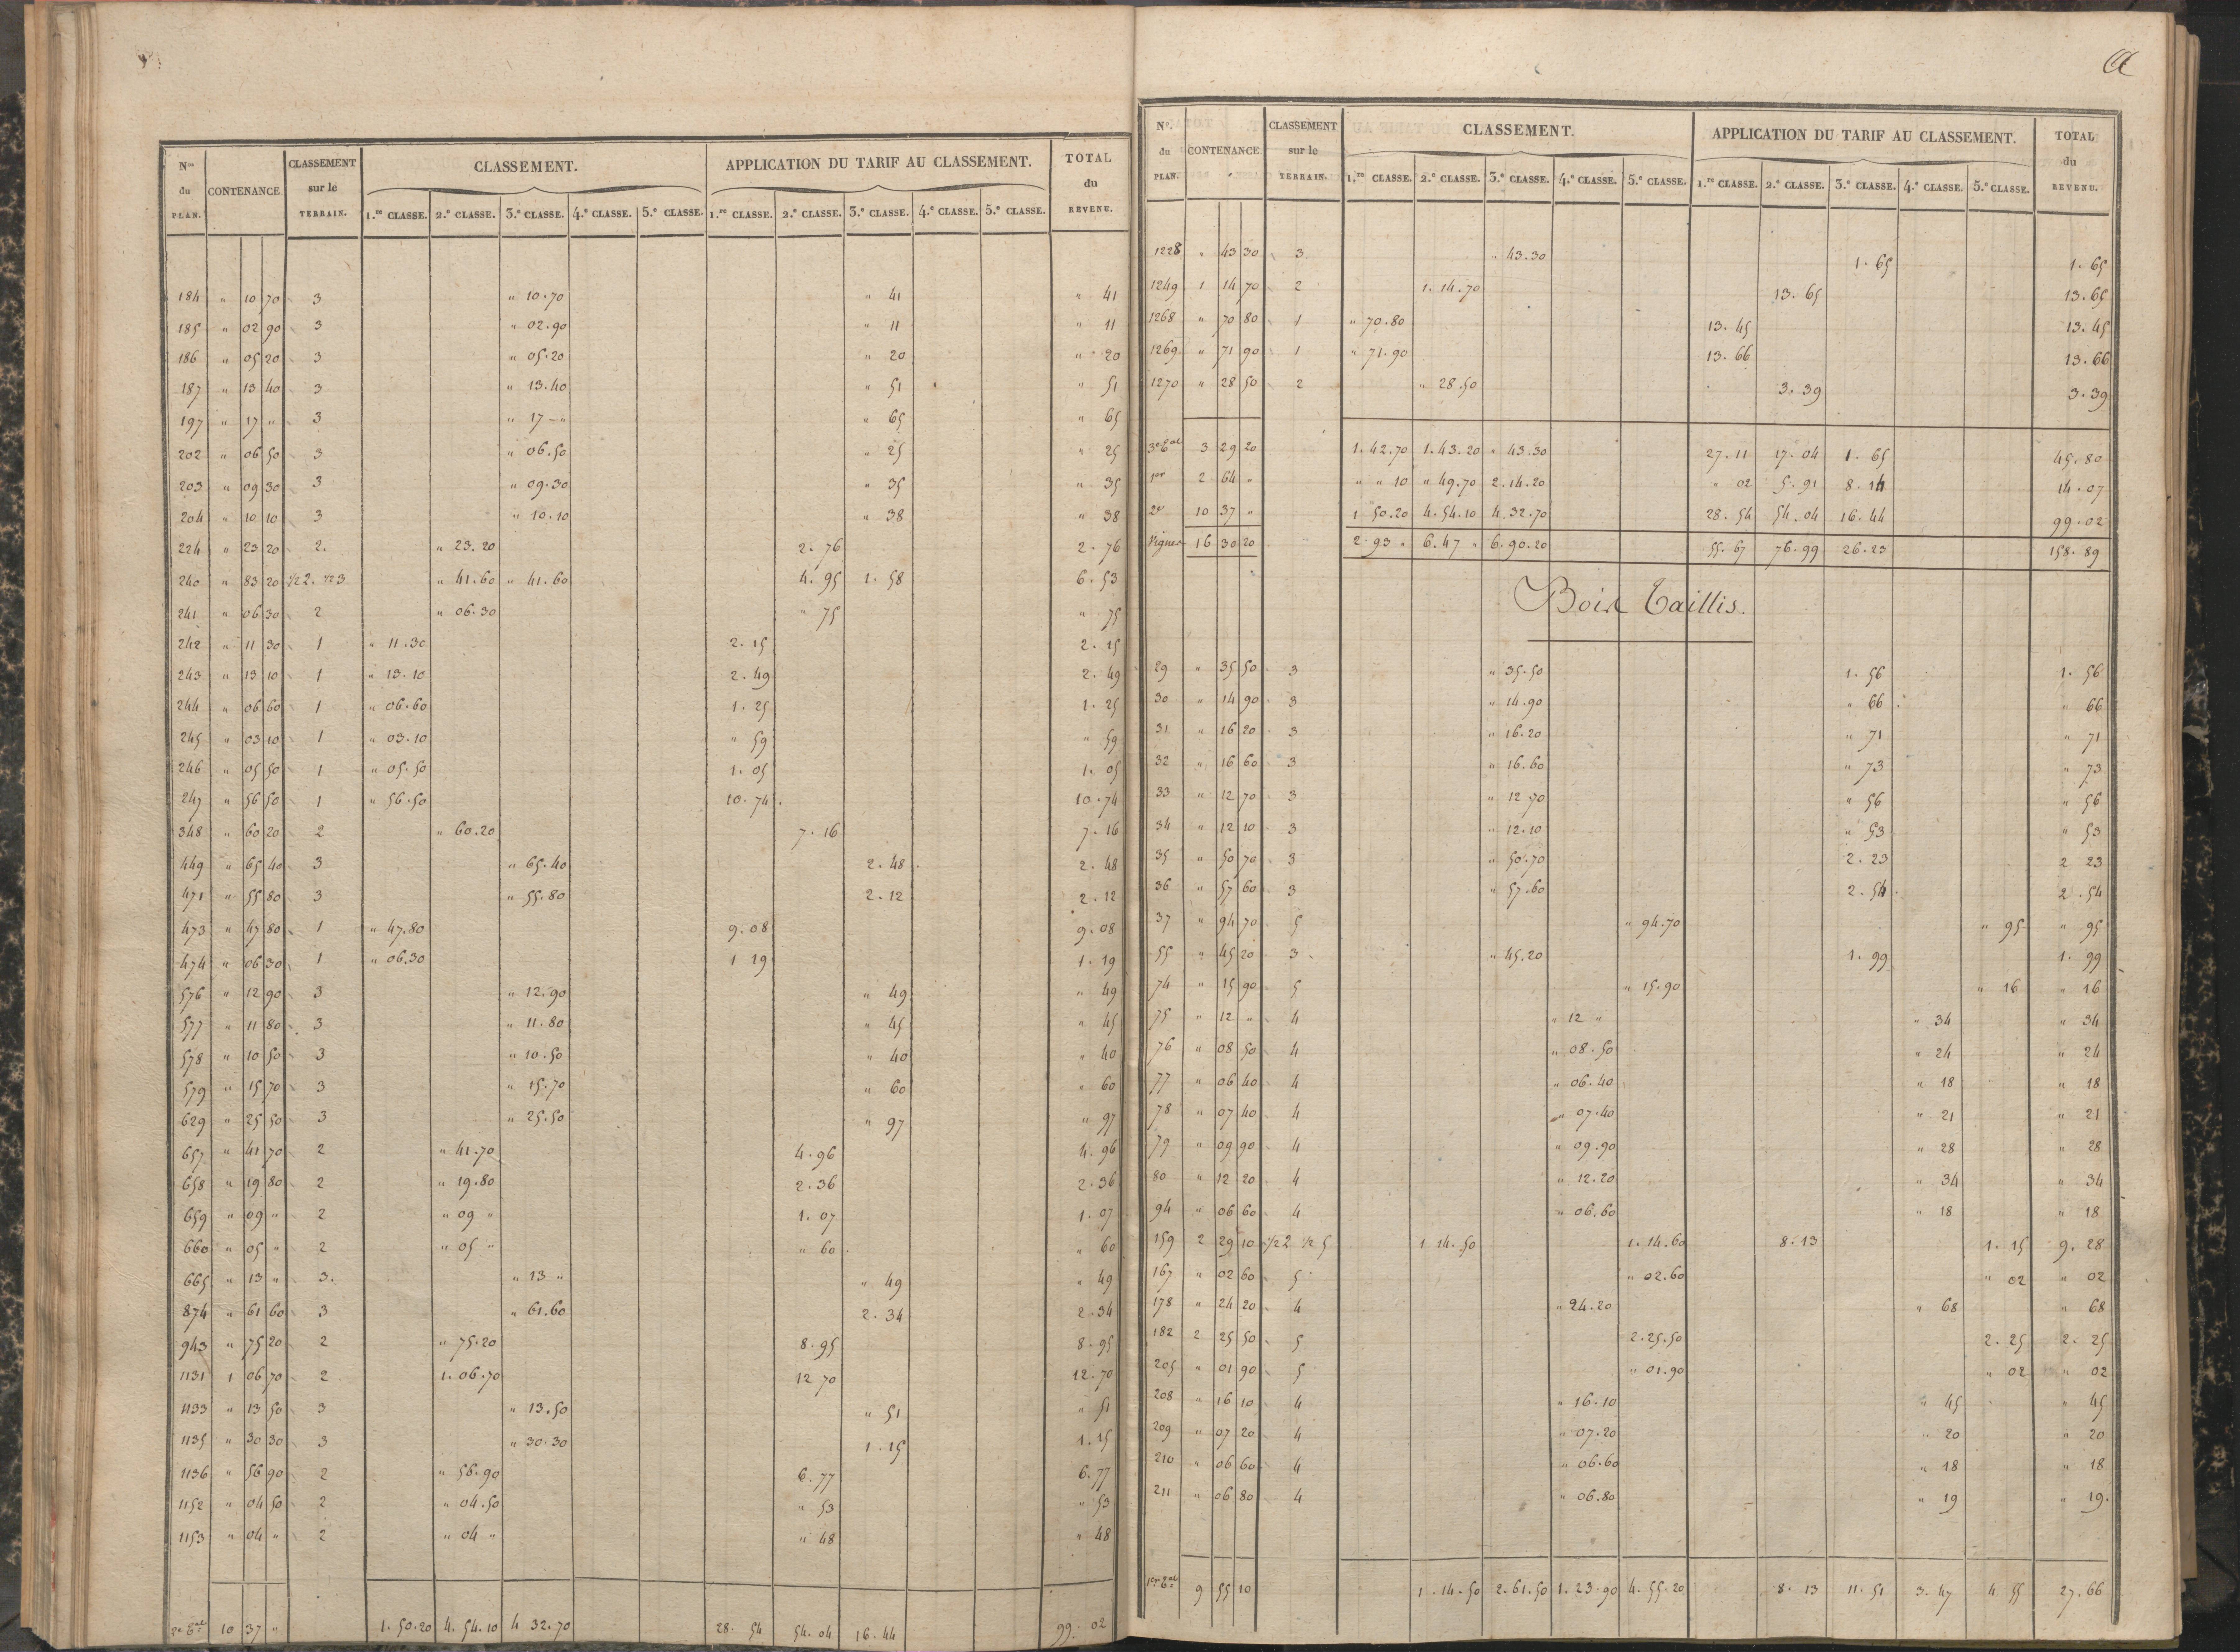 Nos du PLAN. CONTENANCE. CLASSEMENT sur le TERRAIN. CLASSEMENT. APPLICATION DU TARIF AU CLASSEMENT. TOTAL du REVENU.
1.re CLASSE. 2.e CLASSE. 3.e CLASSE. 4.e CLASSE. 5.e CLASSE. 1.re CLASSE. 2.e CLASSE. 3.e CLASSE. 4.e CLASSE. 5.e CLASSE.
184 " 10 70 3 " 10.70 " 41 " 41
185 " 02 90 3 " 02.90 " 11 " 11
186 " 05 20 3 " 05.20 " 20 " 20
187 " 13 40 3 " 13.40 " 51 " 51
197 " 17 " 3 " 17 – " " 65 " 65
202 " 06 50 3 " 06.50 " 25 " 25
203 " 09 30 3 " 09.30 " 35 " 35
204 " 10 10 3 " 10.10 " 38 " 38
224 " 23 20 2. " 23.20 2. 76 2. 76
240 " 83 20 1/2 2. 1/2 3 " 41.60 " 41.60 4. 95 1. 58 6. 53
241 " 06 30 2 " 06.30 " 75 " 75
242 " 11 30 1 " 11.30 2. 15 2. 15
243 " 13 10 1 " 13.10 2. 49 2. 49
244 " 06 60 1 " 06.60 1. 25 1. 25
245 " 03 10 1 " 03.10 " 59 " 59
246 " 05 50 1 " 05.50 1. 05 1. 05
247 " 56 50 1 " 56.50 10. 74 10. 74
348 " 60 20 2 " 60.20 7. 16 7. 16
449 " 65 40 3 " 65.40 2. 48 2. 48
471 " 55 80 3 " 55.80 2. 12 2. 12
473 " 47 80 1 " 47.80 9. 08 9. 08
474 " 06 30 1 " 06.30 1 19 1. 19
576 " 12 90 3 " 12.90 " 49 " 49
577 " 11 80 3 " 11.80 " 45 " 45
578 " 10 50 3 " 10.50 " 40 " 40
579 " 15 70 3 " 15.70 " 60 " 60
629 " 25 50 3 " 25.50 " 97 " 97
657 " 41 70 2 " 41.70 4. 96 4. 96
658 " 19 80 2 " 19.80 2. 36 2. 36
659 " 09 " 2 " 09 " 1. 07 1. 07
660 " 05 " 2 " 05 " " 60 " 60
665 " 13 " 3. " 13 " " 49 " 49
874 " 61 60 3 " 61.60 2. 34 2. 34
943 " 75 20 2 " 75.20 8. 95 8. 95
1131 1 06 70 2 1. 06.70 12 70 12. 70
1133 " 13 50 3 " 13.50 " 51 " 51
1135 " 30 30 3 " 30.30 1. 15 1. 15
1136 " 56 90 2 " 56.90 6. 77 6. 77
1152 " 04 50 2 " 04.50 " 53 " 53
1153 " 04 " 2 " 04 " " 48 " 48
2e Eal 10 37 " 1. 50.20 4. 54.10 4 32.70 28. 54 54. 04 16. 44 99. 02
Nos. du PLAN. CONTENANCE. CLASSEMENT sur le TERRAIN. CLASSEMENT. APPLICATION DU TARIF AU CLASSEMENT. TOTAL du REVENU.
1.re CLASSE. 2.e CLASSE. 3.e CLASSE. 4.e CLASSE. 5.e CLASSE. 1.re CLASSE. 2.e CLASSE. 3.e CLASSE. 4.e CLASSE. 5.e CLASSE.
1228 " 43 30 3 " 43.30 1. 65 1. 65
1249 1 14 70 2 1. 14.70 13. 65 13. 65
1268 " 70 80 1 " 70.80 13. 45 13. 45
1269 " 71 90 1 " 71.90 13. 66 13. 66
1270 " 28 50 2 " 28.50 3. 39 3. 39
3e Eal 3 29 20 1. 42.70 1. 43.20 " 43.30 27. 11 17. 04 1. 65 45. 80
1er 2 64 " " " 10 " 49.70 2. 14.20 " 02 5. 91 8. 14 14. 07
2e 10 37 " 1 50.20 4. 54.10 4. 32.70 28. 54 54. 04 16. 44 99. 02
Vignes 16 30 20 2. 93 " 6. 47 " 6. 90.20 55. 67 76. 99 26. 23 158. 89
Bois Taillis.
29 " 35 50 3 " 35.50 1. 56 1. 56
30 " 14 90 3 " 14.90 " 66 " 66
31 " 16 20 3 " 16.20 " 71 " 71
32 " 16 60 3 " 16.60 " 73 " 73
33 " 12 70 3 " 12.70 " 56 " 56
34 " 12 10 3 " 12.10 " 53 " 53
35 " 50 70 3 " 50.70 2. 23 2 23
36 " 57 60 3 " 57.60 2. 54 2. 54
37 " 94 70 5 " 94.70 " 95 " 95
55 " 45 20 3 " 45.20 1. 99 1. 99
74 " 15 90 5 " 15.90 " 16 " 16
75 " 12 " 4 " 12 " " 34 " 34
76 " 08 50 4 " 08.50 " 24 " 24
77 " 06 40 4 " 06.40 " 18 " 18
78 " 07 40 4 " 07.40 " 21 " 21
79 " 09 90 4 " 09.90 " 28 " 28
80 " 12 20 4 " 12.20 " 34 " 34
94 " 06 60 4 " 06.60 " 18 " 18
159 2 29 10 1/2 2 1/2 5 1 14.50 1. 14.60 8. 13 1. 15 9. 28
167 " 02 60 5 " 02.60 " 02 " 02
178 " 24 20 4 " 24.20 " 68 " 68
182 2 25 50 5 2. 25.50 2. 25 2. 25
205 " 01 90 5 " 01.90 " 02 " 02
208 " 16 10 4 " 16.10 " 45 " 45
209 " 07 20 4 " 07.20 " 20 " 20
210 " 06 60 4 " 06.60 " 18 " 18
211 " 06 80 4 " 06.80 " 19 " 19.
1er Eal 9 55 10 1. 14.50 2. 61.50 1. 23.90 4. 55.20 8. 13 11. 51 3. 47 4 55 27. 66